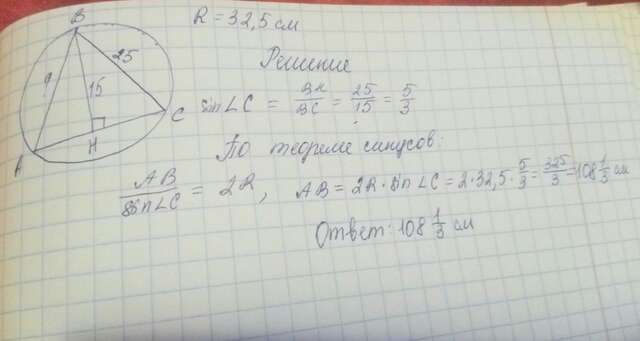 B
R = 32,5 см
25
?
15
A
H
C
Решение
sin∠C = BH/BC = 25/15 = 5/3
По теореме синусов:
AB/sin∠C = 2R, AB = 2R · sin∠C = 2·32,5·5/3 = 325/3 = 108 1/3 см
Ответ: 108 1/3 см